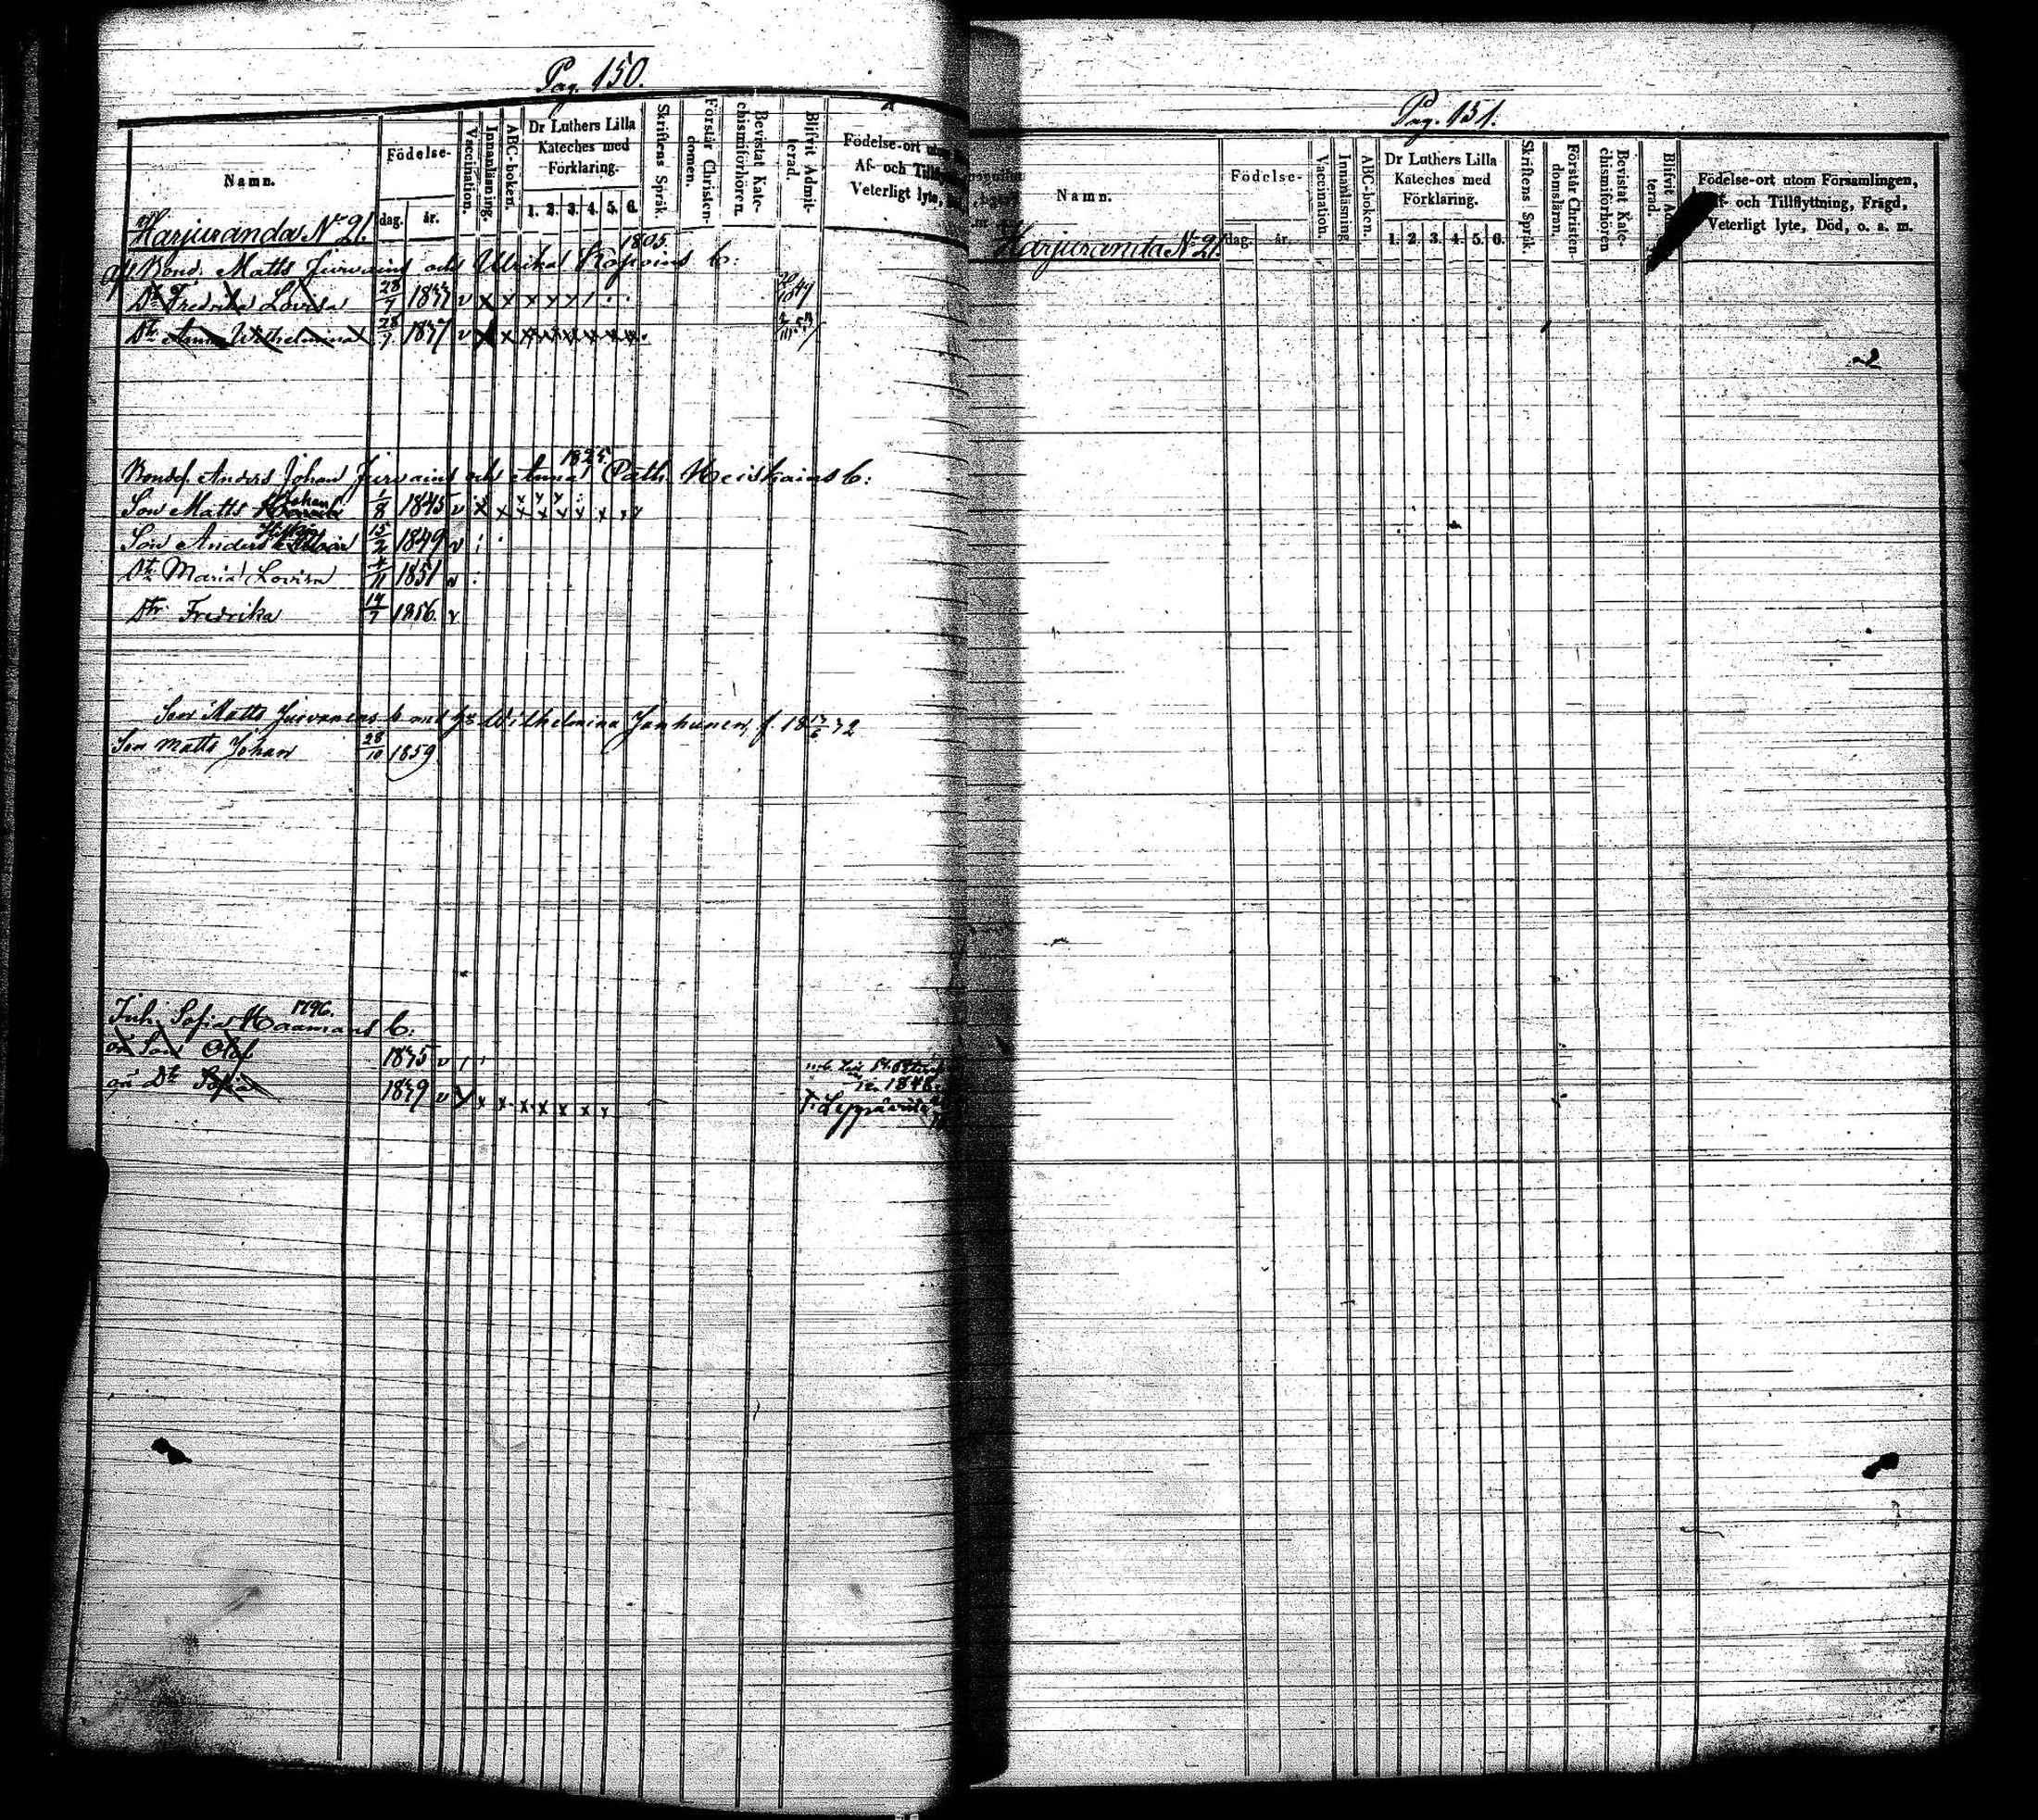 Pag. 150.
Namn.
Födelse-
dag.
år.
Vaccination.
Innanläsning.
ABC-boken.
Dr Luthers Lilla
Kateches med
Förklaring.
1. 2. 3. 4. 5. 6.
Skriftens Språk.
Förstår Christen-
domen.
Bevistat Kate-
chismiförhören.
Blifvit Admit-
terad.
Födelse-ort utom
Af- och
Veterligt lyte,
Harjuranda No 21.
1805.
Bond. Matts Jurvains och Ulrika b:
Dtr Fredrika Lovisa 28/7 1837 v x x x x x x
Dtr Anna Wilhelmina 28/7 1837 v x x x x x x x x
1825.
Bonds. Anders Johan Jurvains och Anna Cath. Heiskains b:
Son Matts Johan 1/8 1845 v x x x x x x x
Son Anders 15/2 1849 v
Dtr Maria Lovisa 4/11 1851 v
Dtr Fredrika 14/7 1856. v
Son Matts Jurvanens b med hu Wilhelmina Janhunen, f. 18 32
Son Matts Johan 28/10 1859
1796.
Inh. Sofia b:
oä Son Olof 1835 v
oä Dtr Sofia 1839 v x x x x x x x
1848.
T. Leppävirta
Pag. 151.
Namn.
Födelse-
dag.
år.
Vaccination.
Innanläsning
ABC-boken.
Dr Luthers Lilla
Kateches med
Förklaring.
1. 2. 3. 4. 5. 6.
Skriftens Språk.
Förstår Christen-
domsläran.
Bevistat Kate-
chismiförhören
Blifvit
terad.
Födelse-ort utom Församlingen,
Af- och Tillflyttning, Frägd,
Veterligt lyte, Död, o. a. m.
Harjuranda No 21.